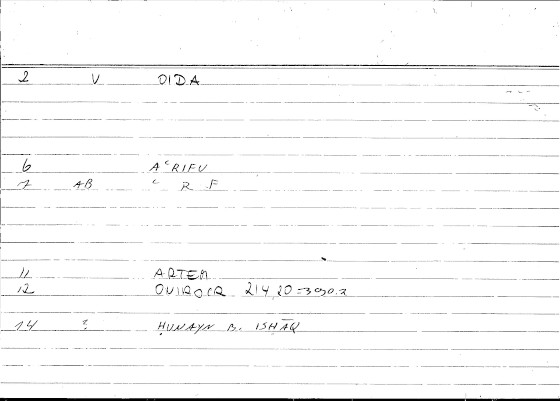 2 V OIDA
6 AʿRIFU
7 AB ʿ R F
11 ARTEM
12 OVIROCR 214,20 = 390.2
14 ? ḤUNAYN B. ISḤĀQ